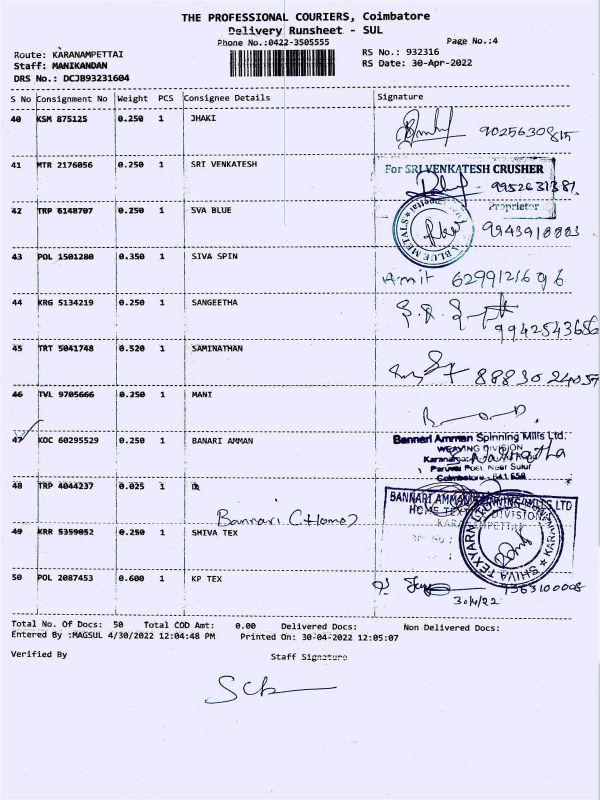 THE PROFESSIONAL COURIERS, Coimbatore
Delivery Runsheet - SUL
Phone No.:0422-3505555
Page No.:4
Route: KARANAMPETTAI
RS No.: 932316
Staff: MANIKANDAN
RS Date: 30-Apr-2022
DRS No.: DCJB93231604
S No Consignment No Weight PCS Consignee Details Signature
40 KSM 875125 0.250 1 JHAKI
9025630815
41 MTR 2176056 0.250 1 SRI VENKATESH
For SRI VENKATESH CRUSHER
9952631381.
Proprietor
42 TRP 6148707 0.250 1 SVA BLUE
BLUE METALS
9943910003
43 POL 1501280 0.350 1 SIVA SPIN
Amit 6299121696
44 KRG 5134219 0.250 1 SANGEETHA
9942543686
45 TRT 5041748 0.520 1 SAMINATHAN
46 TVL 9705666 0.250 1 MANI
47 KOC 60295529 0.250 1 BANARI AMMAN
Bannari Amman Spinning Mills Ltd.
WEAVING DIVISION
Paruvai Post, Near Sulur
Coimbatore - 641 658
48 TRP 4044237 0.025 1
Bannari (Home)
BANNARI AMMAN SPINNING MILLS LTD
HOME TEX DIVISION
KARANAMPETTAI
49 KRR 5359052 0.250 1 SHIVA TEX
SHIVA TEXYARN
50 POL 2087453 0.600 1 KP TEX
30/4/22
Total No. Of Docs: 50 Total COD Amt: 0.00 Delivered Docs: Non Delivered Docs:
Entered By :MAGSUL 4/30/2022 12:04:48 PM Printed On: 30-04-2022 12:05:07
Verified By Staff Signature